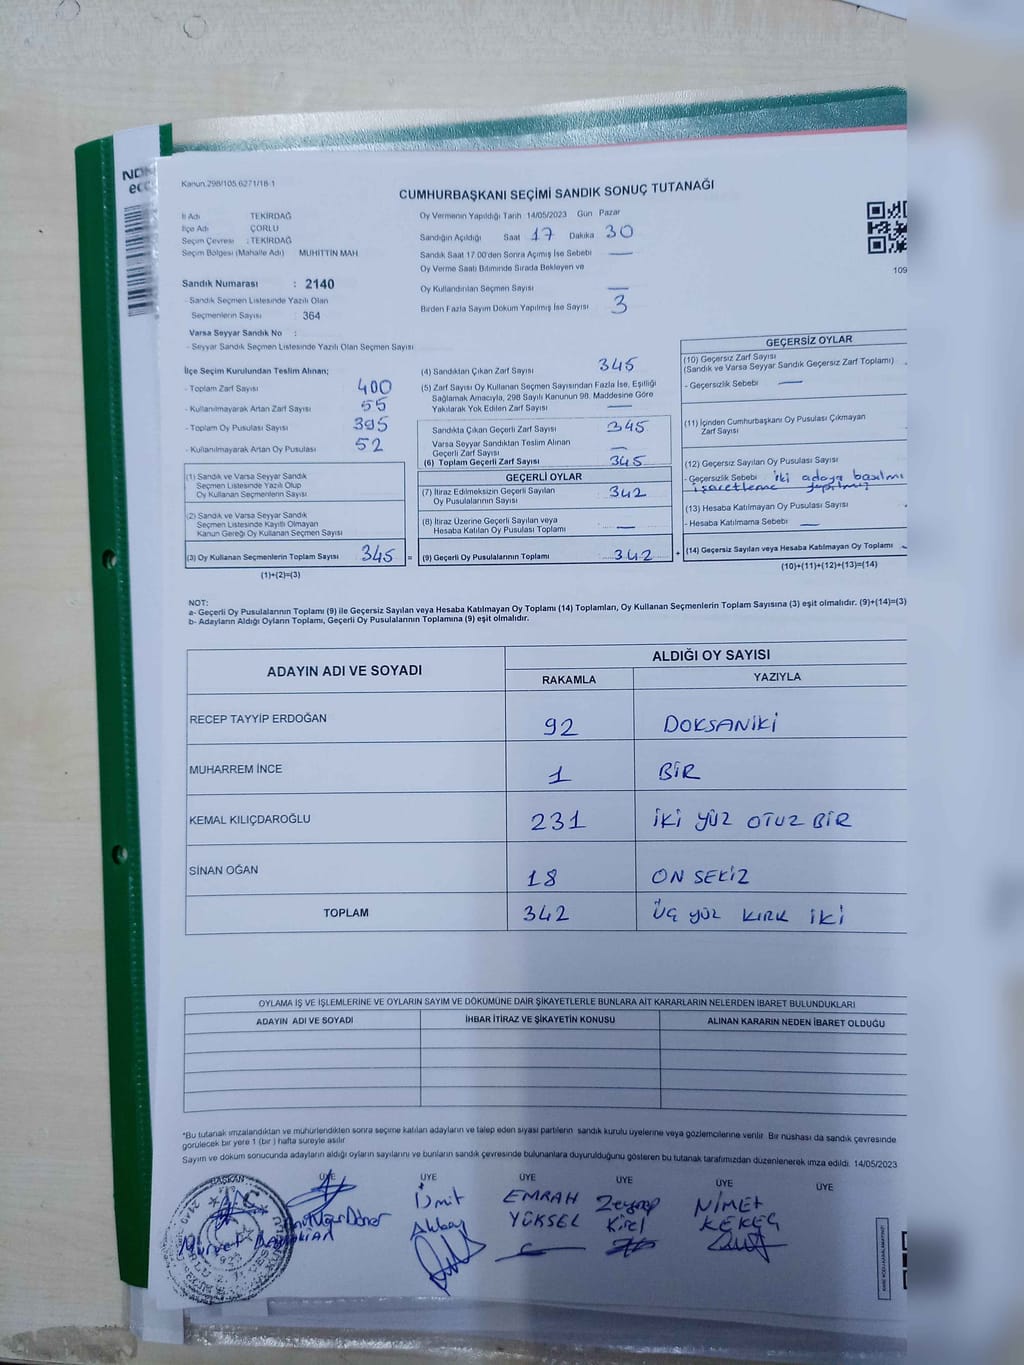 Kanun.298/105.6271/18-1
CUMHURBAŞKANI SEÇİMİ SANDIK SONUÇ TUTANAĞI
İl Adı TEKİRDAĞ
İlçe Adı ÇORLU
Seçim Çevresi : TEKİRDAĞ
Seçim Bölgesi (Mahalle Adı) MUHİTTİN MAH.
Sandık Numarası : 2140
- Sandık Seçmen Listesinde Yazılı Olan
Seçmenlerin Sayısı : 364
Varsa Seyyar Sandık No :
- Seyyar Sandık Seçmen Listesinde Yazılı Olan Seçmen Sayısı
Oy Vermenin Yapıldığı Tarih 14/05/2023 Gün Pazar
Sandığın Açıldığı Saat 17 Dakika 30
Sandık Saat 17.00'den Sonra Açımış İse Sebebi —
Oy Verme Saati Bitiminde Sırada Bekleyen ve
Oy Kullandırılan Seçmen Sayısı —
Birden Fazla Sayım Döküm Yapılmış İse Sayısı 3
109
İlçe Seçim Kurulundan Teslim Alınan;
- Toplam Zarf Sayısı 400
- Kullanılmayarak Artan Zarf Sayısı 55
- Toplam Oy Pusulası Sayısı 395
- Kullanılmayarak Artan Oy Pusulası 52
(1) Sandık ve Varsa Seyyar Sandık
Seçmen Listesinde Yazılı Olup
Oy Kullanan Seçmenlerin Sayısı
(2) Sandık ve Varsa Seyyar Sandık
Seçmen Listesinde Kayıtlı Olmayan
Kanun Gereği Oy Kullanan Seçmen Sayısı
(3) Oy Kullanan Seçmenlerin Toplam Sayısı 345 =
(1)+(2)=(3)
(4) Sandıktan Çıkan Zarf Sayısı 345
(5) Zarf Sayısı Oy Kullanan Seçmen Sayısından Fazla İse, Eşitliği
Sağlamak Amacıyla, 298 Sayılı Kanunun 98. Maddesine Göre
Yakılarak Yok Edilen Zarf Sayısı —
Sandıkta Çıkan Geçerli Zarf Sayısı 345
Varsa Seyyar Sandıktan Teslim Alınan
Geçerli Zarf Sayısı —
(6) Toplam Geçerli Zarf Sayısı 345
GEÇERLİ OYLAR
(7) İtiraz Edilmeksizin Geçerli Sayılan
Oy Pusulalarının Sayısı 342
(8) İtiraz Üzerine Geçerli Sayılan veya
Hesaba Katılan Oy Pusulası Toplamı —
(9) Geçerli Oy Pusulalarının Toplamı 342 +
GEÇERSİZ OYLAR
(10) Geçersiz Zarf Sayısı
(Sandık ve Varsa Seyyar Sandık Geçersiz Zarf Toplamı)
- Geçersizlik Sebebi —
(11) İçinden Cumhurbaşkanı Oy Pusulası Çıkmayan
Zarf Sayısı
(12) Geçersiz Sayılan Oy Pusulası Sayısı
- Geçersizlik Sebebi iki adaya basılmı
işaretleme yapılmış
(13) Hesaba Katılmayan Oy Pusulası Sayısı
- Hesaba Katılmama Sebebi —
(14) Geçersiz Sayılan veya Hesaba Katılmayan Oy Toplamı
(10)+(11)+(12)+(13)=(14)
NOT:
a- Geçerli Oy Pusulalarının Toplamı (9) ile Geçersiz Sayılan veya Hesaba Katılmayan Oy Toplamı (14) Toplamları, Oy Kullanan Seçmenlerin Toplam Sayısına (3) eşit olmalıdır. (9)+(14)=(3)
b- Adayların Aldığı Oyların Toplamı, Geçerli Oy Pusulalarının Toplamına (9) eşit olmalıdır.
ADAYIN ADI VE SOYADI
ALDIĞI OY SAYISI
RAKAMLA YAZIYLA
RECEP TAYYİP ERDOĞAN 92 DOKSANİKİ
MUHARREM İNCE 1 BİR
KEMAL KILIÇDAROĞLU 231 İKİ YÜZ OTUZ BİR
SİNAN OĞAN 18 ON SEKİZ
TOPLAM 342 ÜÇ YÜZ KIRK İKİ
OYLAMA İŞ VE İŞLEMLERİNE VE OYLARIN SAYIM VE DÖKÜMÜNE DAİR ŞİKAYETLERLE BUNLARA AİT KARARLARIN NELERDEN İBARET BULUNDUKLARI
ADAYIN ADI VE SOYADI İHBAR İTİRAZ VE ŞİKAYETİN KONUSU ALINAN KARARIN NEDEN İBARET OLDUĞU
*Bu tutanak imzalandıktan ve mühürlendikten sonra seçime katılan adayların ve talep eden siyasi partilerin sandık kurulu üyelerine veya gözlemcilerine verilir. Bir nüshası da sandık çevresinde
görülecek bir yere 1 (bir) hafta süreyle asılır.
Sayım ve döküm sonucunda adayların aldığı oyların sayılarını ve bunların sandık çevresinde bulunanlara duyurulduğunu gösteren bu tutanak tarafımızdan düzenlenerek imza edildi. 14/05/2023
BAŞKAN ÜYE ÜYE ÜYE ÜYE ÜYE ÜYE
Ümit EMRAH Zeynep NİMET
Akbay YÜKSEL Kirel KEKEÇ